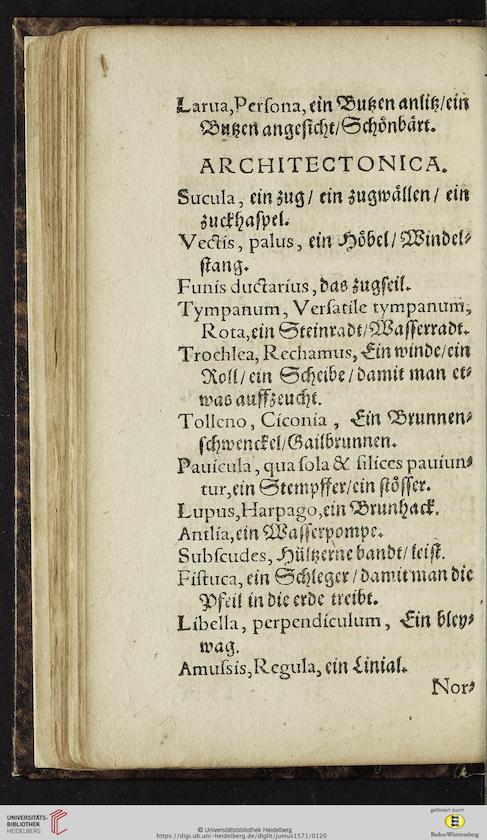 Larua,Persona, ein Butzen anlitz/ein
Butzen angesicht/Schönbårt.
ARCHITECTONICA.
Sucula, ein zug/ ein zugwållen/ ein
zuckhaspel.
Vectis, palus, ein Höbel/ Windel⸗
stang.
Funis ductarius, das zugseil.
Tympanum, Versatile tympanum,
Rota,ein Steinradt/Wasserradt.
Trochlea, Rechamus, Ein winde/ein
Roll/ ein Scheibe/ damit man et⸗
was auffzeucht.
Tolleno, Ciconia , Ein Brunnen⸗
schwenckel/Gailbrunnen.
Pauicula, qua sola & silices pauiun⸗
tur,ein Stempffer/ein stösser.
Lupus,Harpago,ein Brunhack.
Antlia,ein Wasserpompe.
Subscudes, Hültzerne bandt/ leist.
Fistuca, ein Schleger/ damit man die
Pfeil in die erde treibt.
Libella, perpendiculum, Ein bley⸗
wag.
Amussis,Regula, ein Linial.
Nor⸗
UNIVERSITÄTS-
BIBLIOTHEK
HEIDELBERG
© Universitätsbibliothek Heidelberg
https://digi.ub.uni-heidelberg.de/diglit/junius1571/0120
gefördert durch
Baden-Württemberg